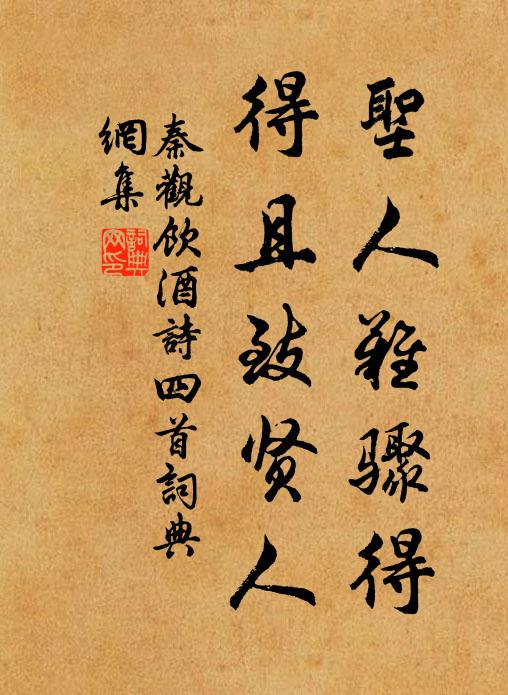 聖人難驟得
得且致贤人
秦觀飲酒詩四首詞典
網集
詞典
網印